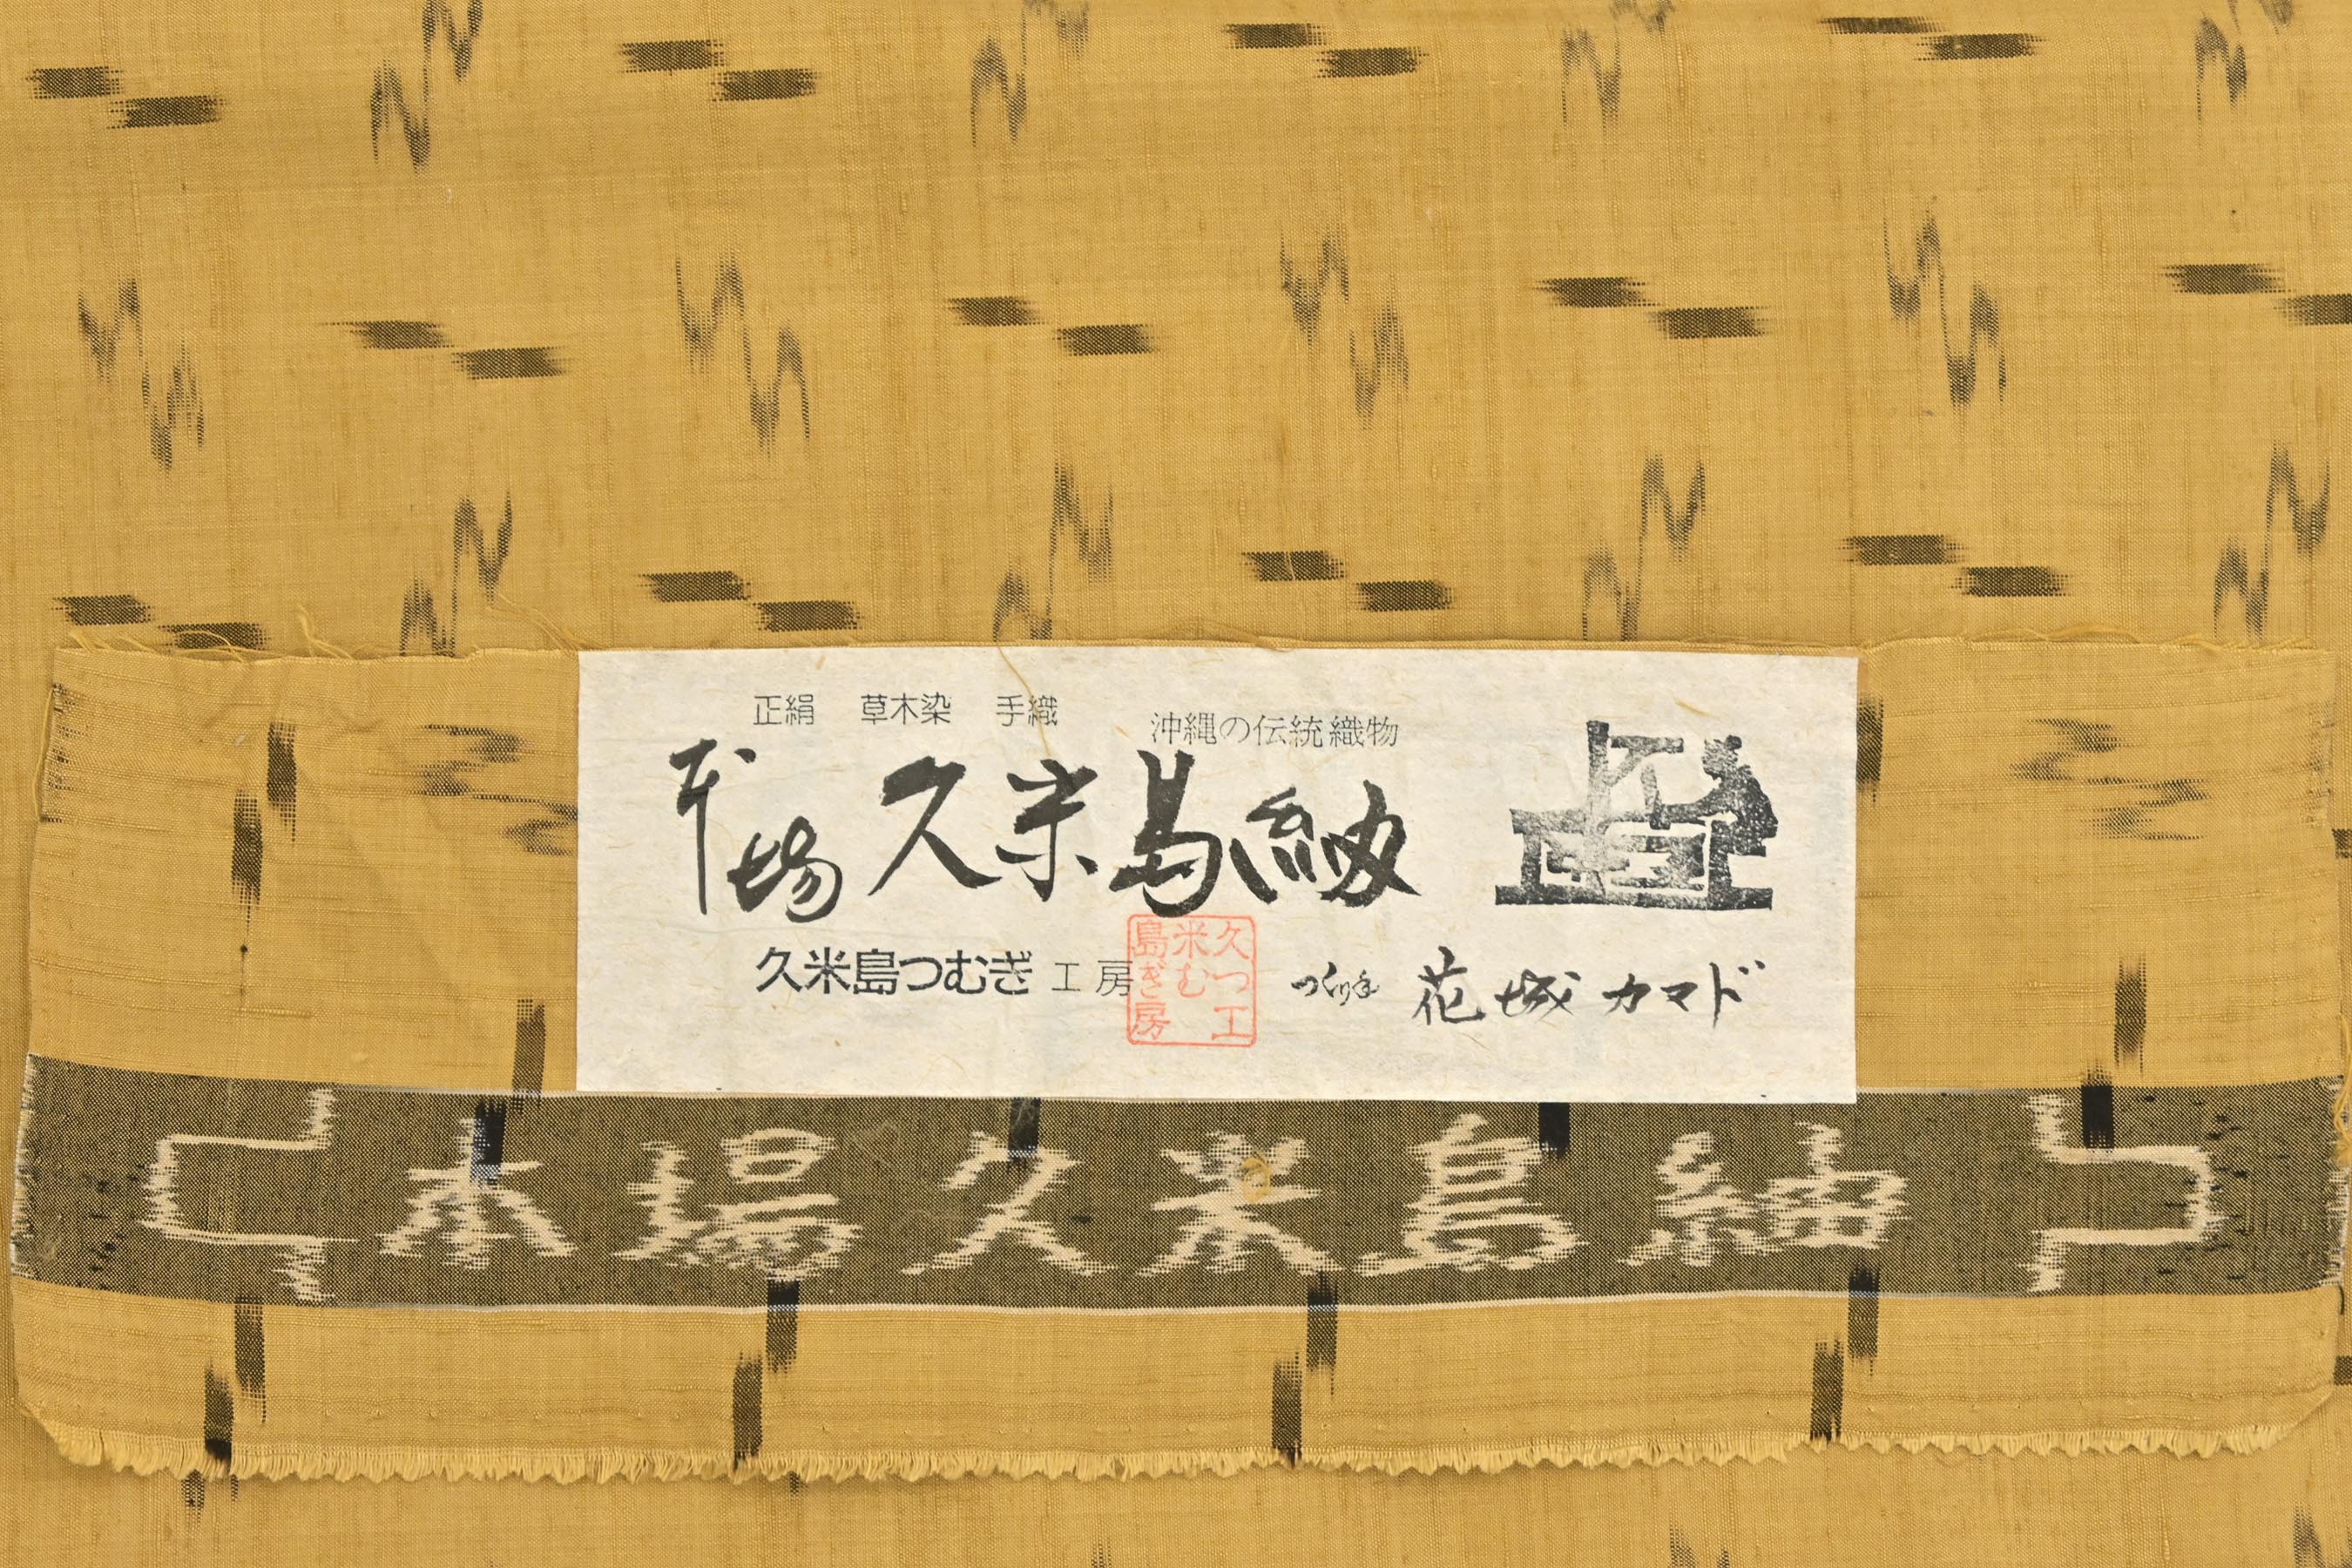 正絹 草木染 手織
沖縄の伝統織物
本場 久米島紬
久米島つむぎ 工房
久米島
つむぎ
工房
つくり手 花城カマド
「本場久米島紬」